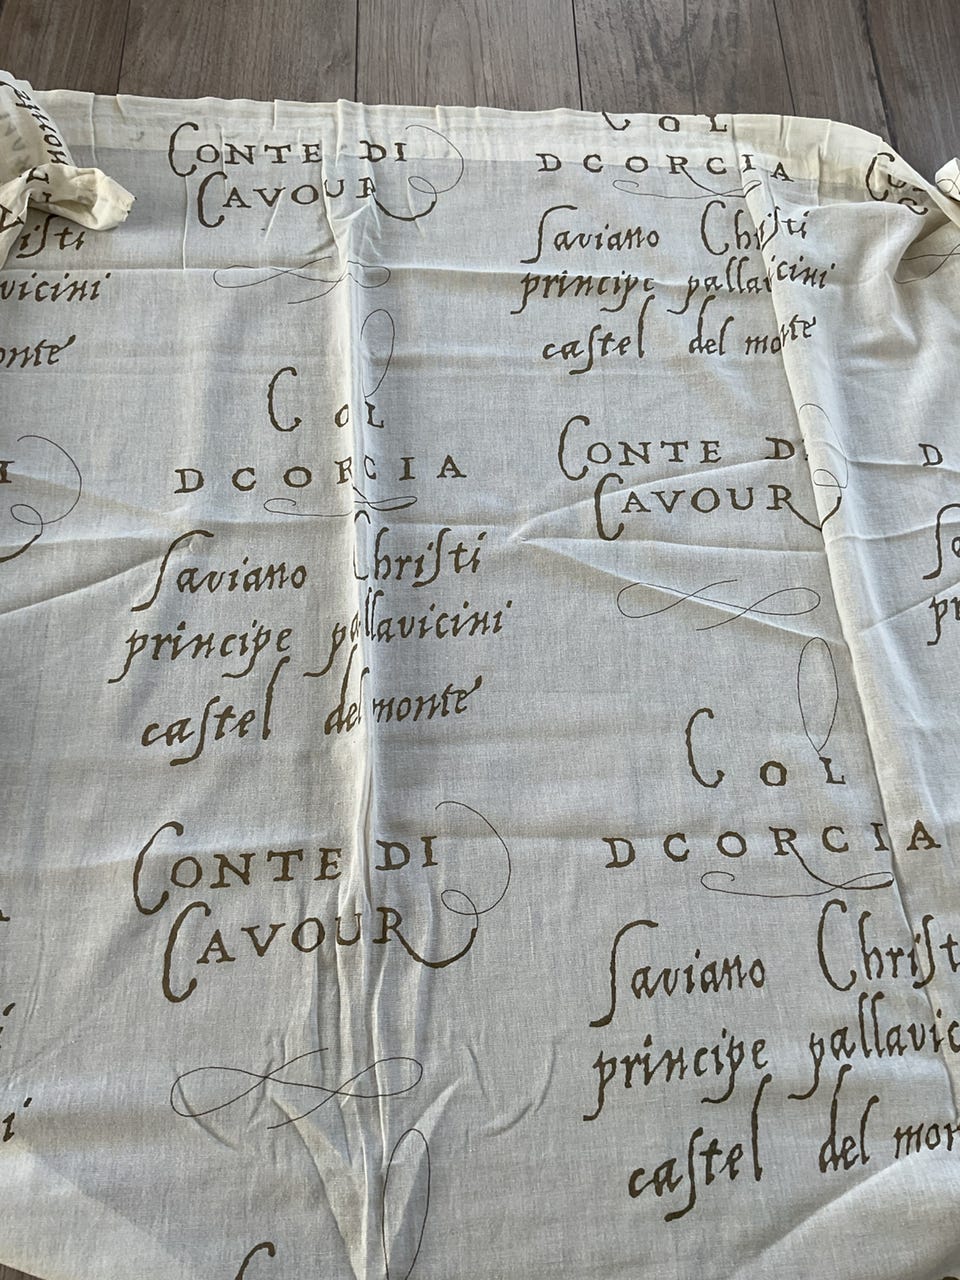 monte
CONTE DI
CAVOUR
COL
DCORCIA
Saviano Christi
principe pallavicini
castel del monte
isti
vicini
onte
COL
DCORCIA
Saviano Christi
principe pallavicini
castel del monte
CONTE DI
CAVOUR
D
pr
COL
DCORCIA
CONTE DI
CAVOUR
Saviano Christ
principe pallavic
castel del mon
i